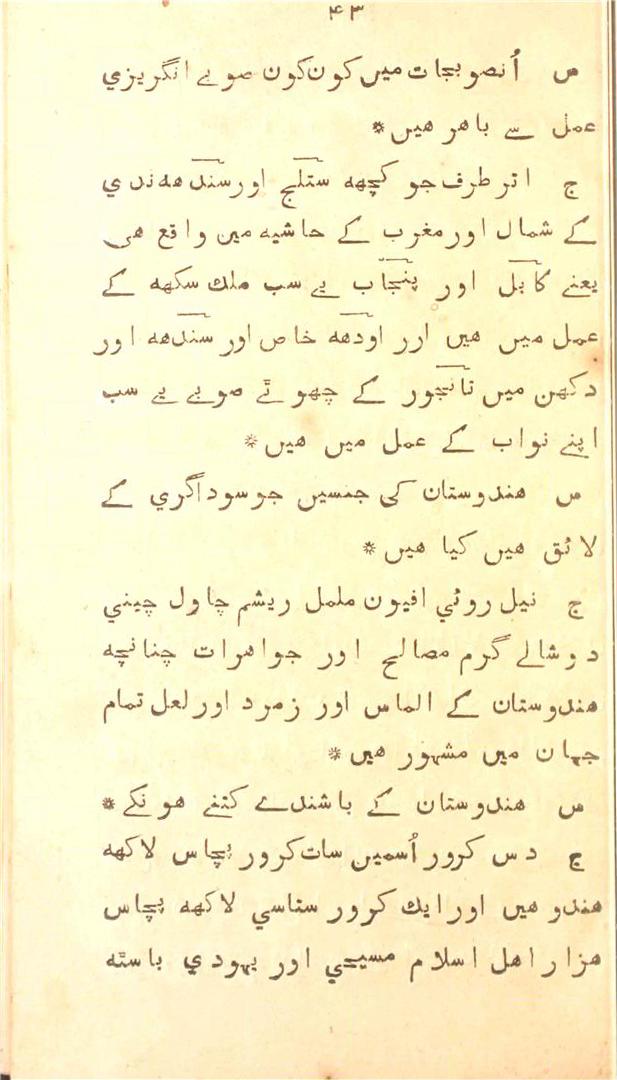 ۴۳
س اُنصوبجات میں کون کون صوبے انگریزي
عمل سے باهر هیں *
ج اتر طرف جو کچهه ستلج اور سنده ندي
کے شمال اور مغرب کے حاشیه مین واقع هی
یعنے کابل اور پنجاب یے سب ملك سکهه کے
عمل میں هیں ارر اودهه خاص اور سندهه اور
دکهن میں تانجور کے چهوٹے صوبے یے سب
اپنے نواب کے عمل میں هیں *
س هندوستان کی جنسیں جو سوداگري کے
لائق هیں کیا هیں *
ج نیل روئي افیون ململ ریشم چاول چیني
دوشالے گرم مصالح اور جواهرات چنانچه
هندوستان کے الماس اور زمرد اور لعل تمام
جہان میں مشہور هیں *
س هندوستان کے باشندے کتنے هونگے *
ج دس کرور اُسمین سات کرور پچاس لاکهه
هندو هیں اور ایك کرور ستاسي لاکهه پچاس
هزار اهل اسلام مسیحي اور یہودي باسٹه